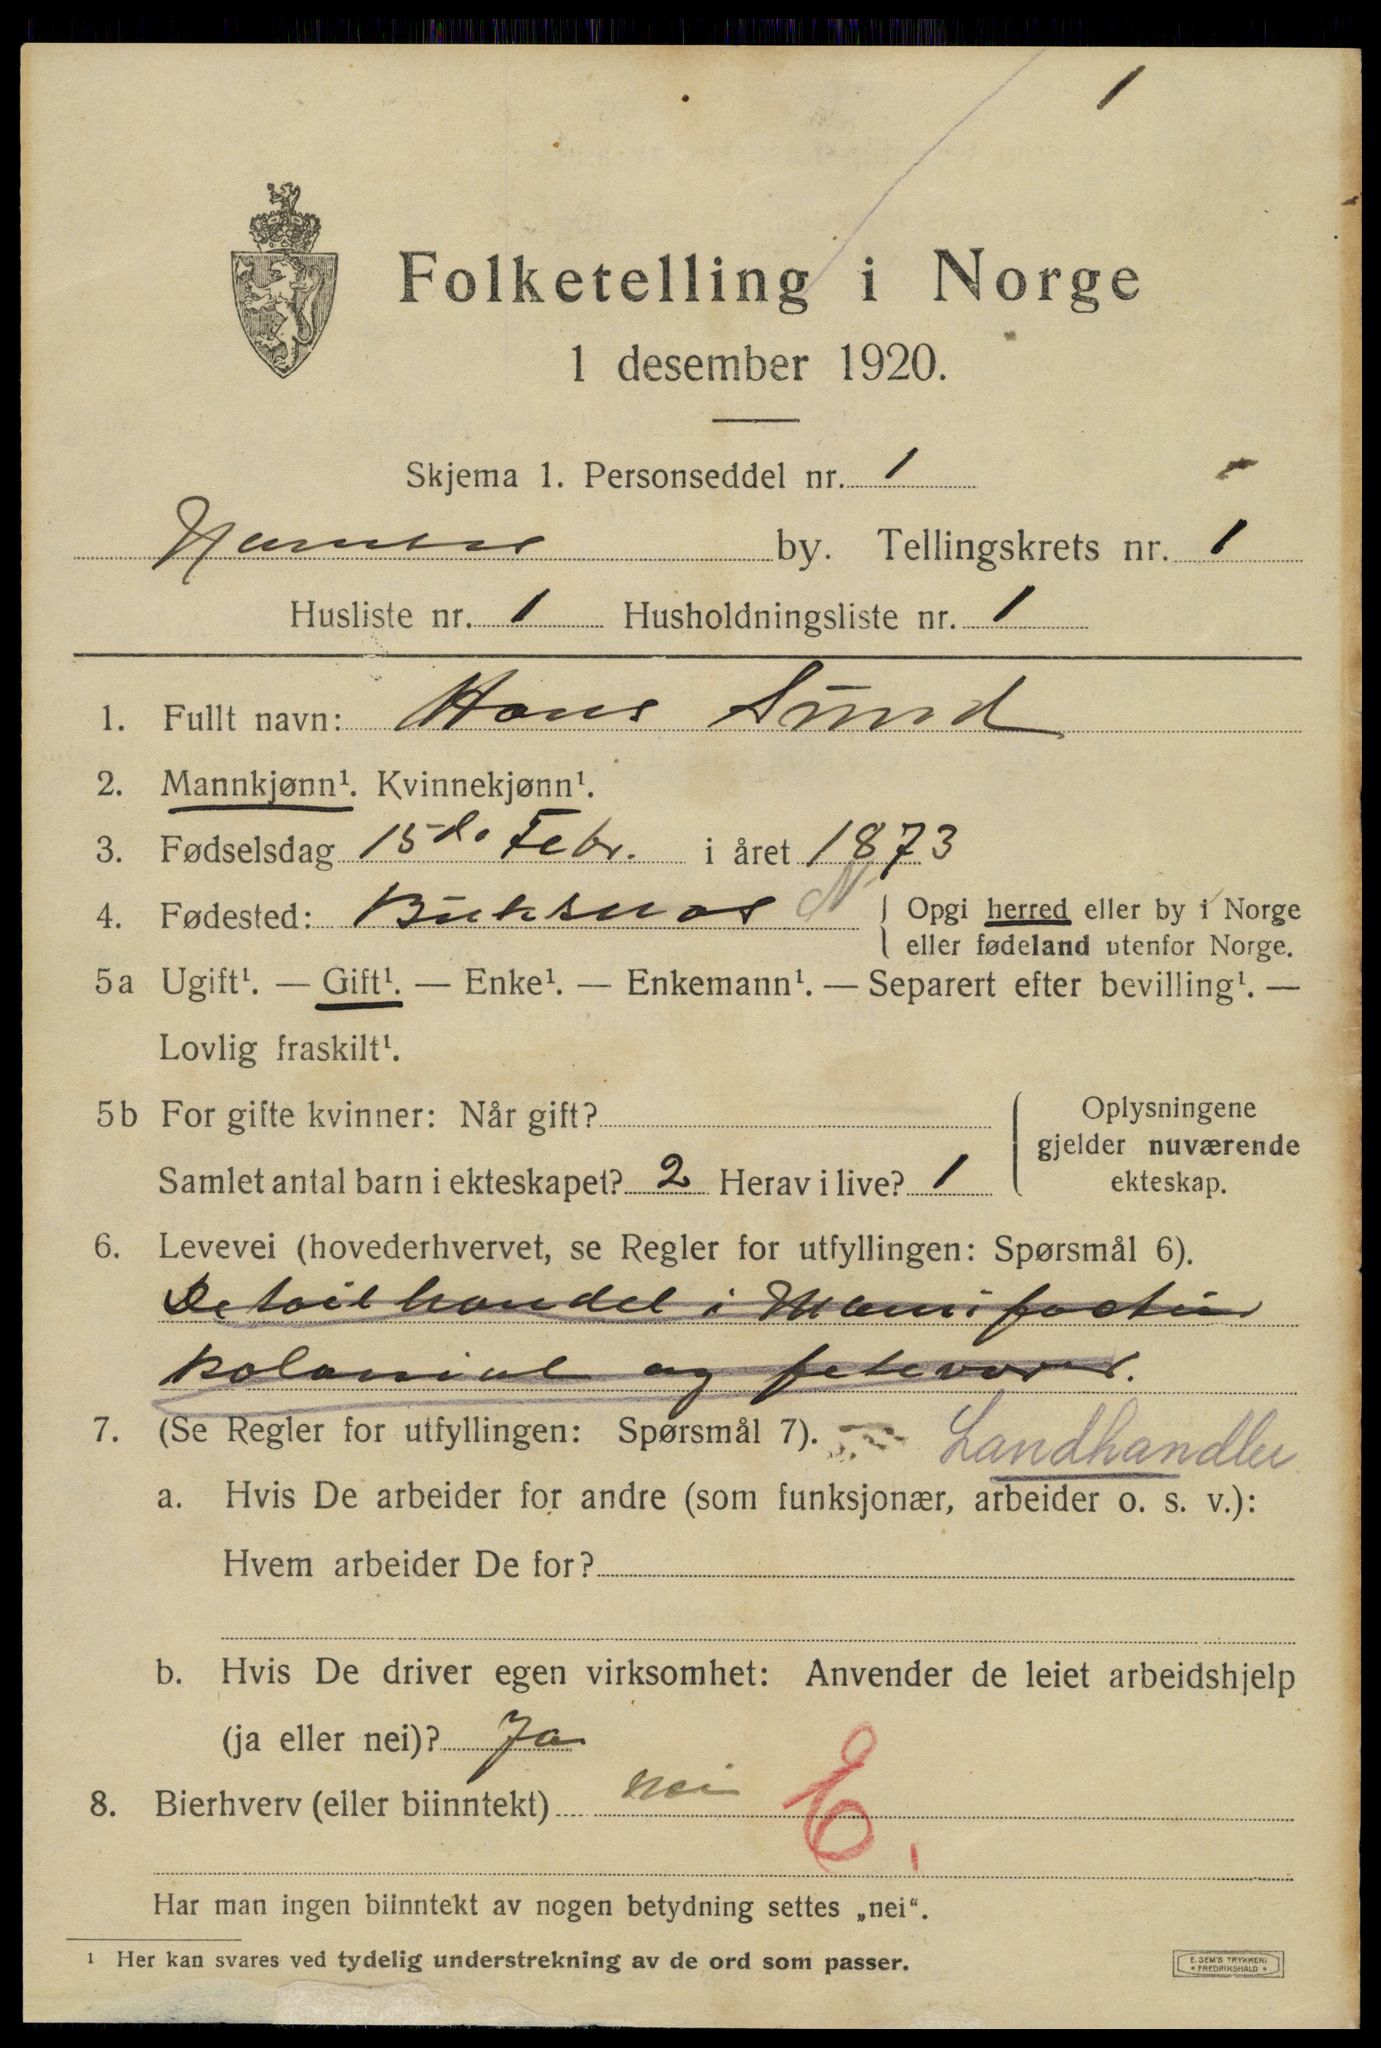 1
Folketelling i Norge
1 desember 1920.
Skjema 1. Personseddel nr. 1
by. Tellingskrets nr. 1
Husliste nr. 1 Husholdningsliste nr. 1
1. Fullt navn: Hans Sund
2. Mannkjønn¹. Kvinnekjønn¹.
3. Fødselsdag 15de Febr. i året 1873
4. Fødested: Buksnes N { Opgi herred eller by i Norge
eller fødeland utenfor Norge.
5a Ugift¹. — Gift¹. — Enke¹. — Enkemann¹. — Separert efter bevilling¹. —
Lovlig fraskilt¹.
5b For gifte kvinner: Når gift? Oplysningene
gjelder nuværende
Samlet antal barn i ekteskapet? 2 Herav i live? 1 ekteskap.
6. Levevei (hovederhvervet, se Regler for utfyllingen: Spørsmål 6).
Detailhandel i Manifactur
kolonial og fetevarer.
7. (Se Regler for utfyllingen: Spørsmål 7). Landhandler
a. Hvis De arbeider for andre (som funksjonær, arbeider o. s. v.):
Hvem arbeider De for?
b. Hvis De driver egen virksomhet: Anvender de leiet arbeidshjelp
(ja eller nei)? Ja
8. Bierhverv (eller biinntekt) nei E.
Har man ingen biinntekt av nogen betydning settes „nei“.
¹ Her kan svares ved tydelig understrekning av de ord som passer.
E. SEM'S TRYKKERI
• FREDRIKSHALD •